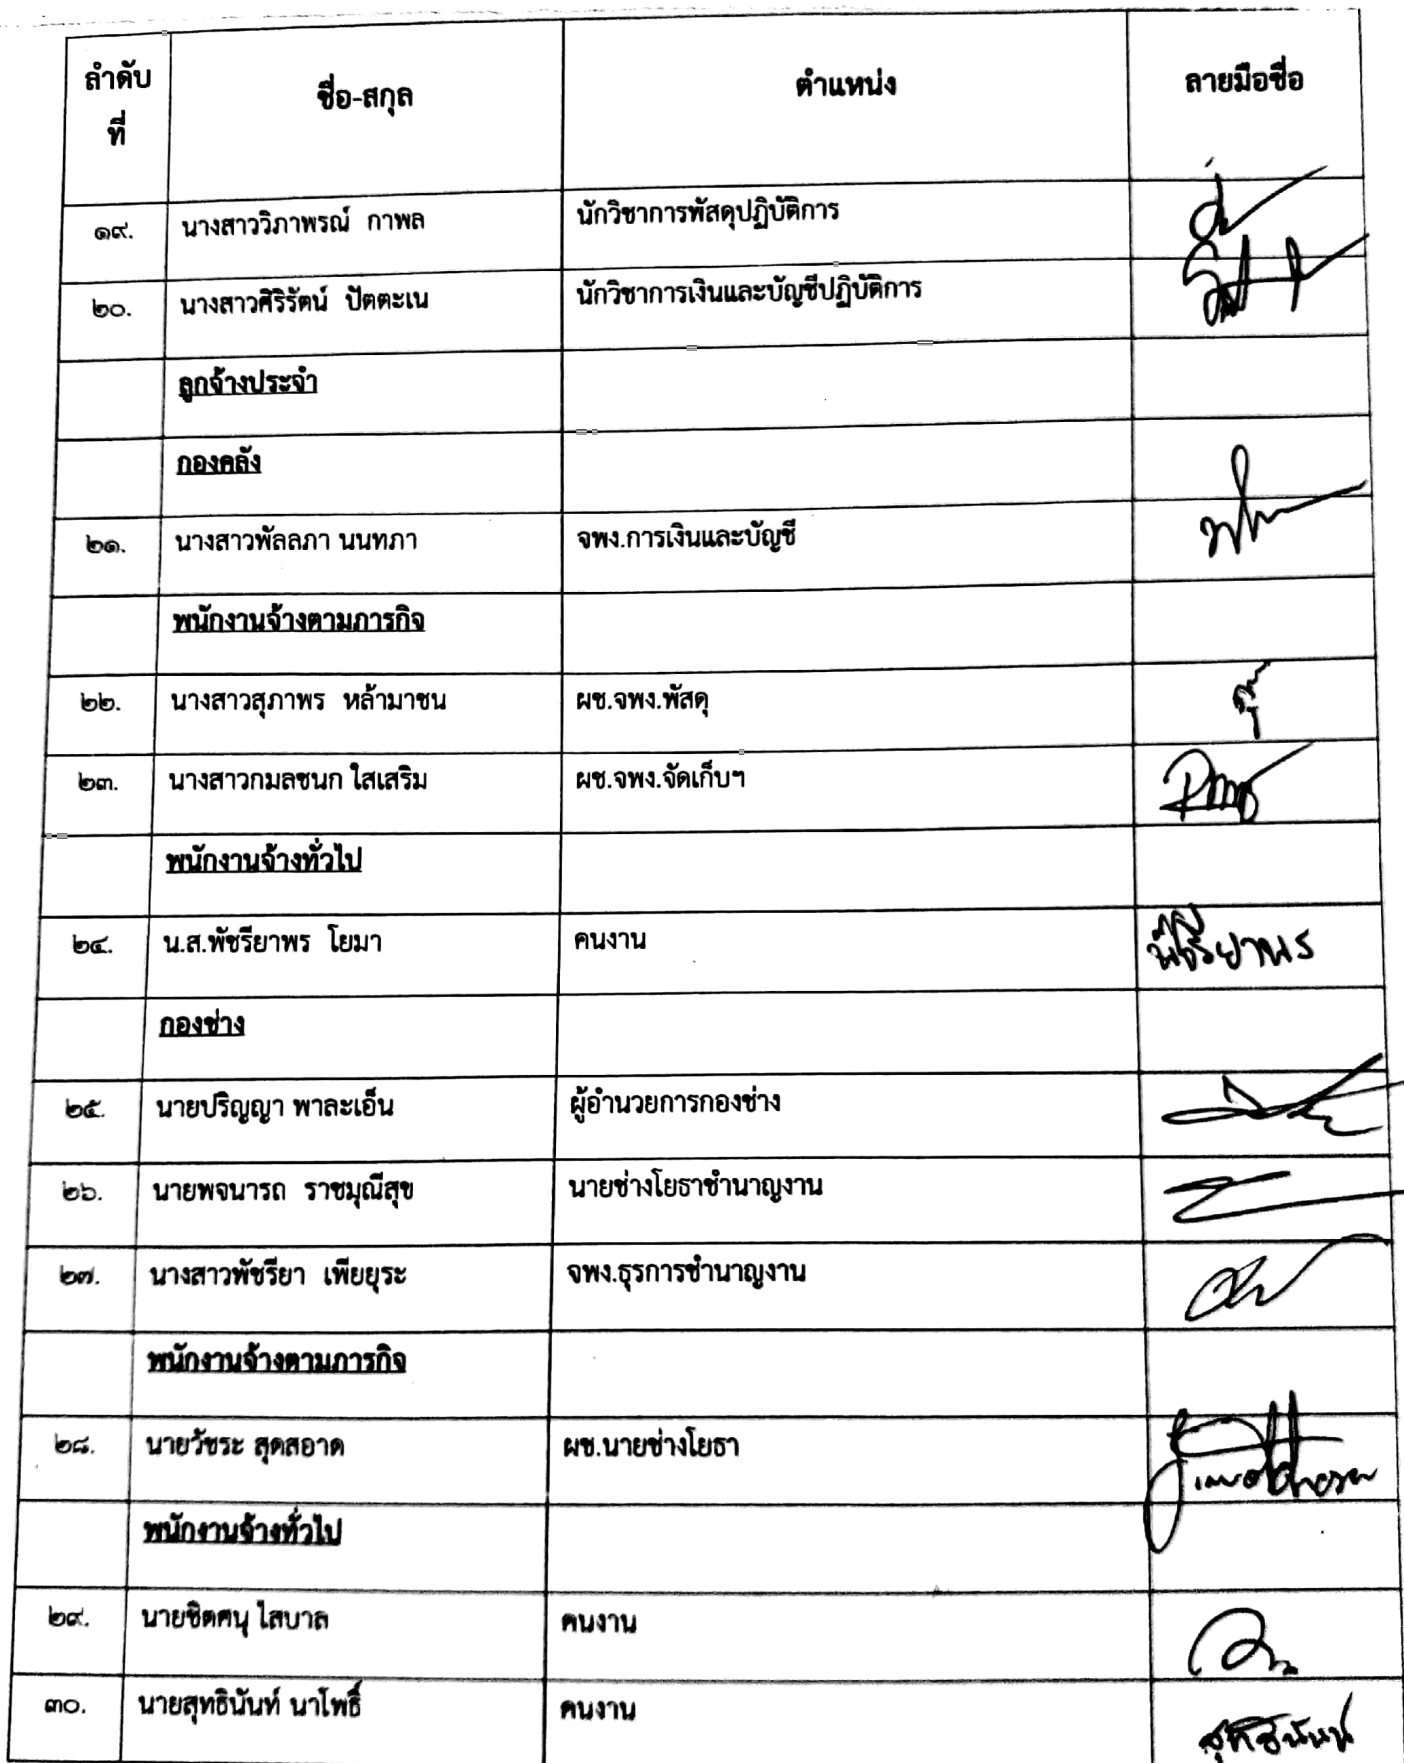 ลำดับที่ ชื่อ-สกุล ตำแหน่ง ลายมือชื่อ
๑๙. นางสาววิภาพรณ์ กาพล นักวิชาการพัสดุปฏิบัติการ
๒๐. นางสาวศิริรัตน์ ปัตตะเน นักวิชาการเงินและบัญชีปฏิบัติการ
ลูกจ้างประจำ
กองคลัง
๒๑. นางสาวพัลลภา นนทภา จพง.การเงินและบัญชี
พนักงานจ้างตามภารกิจ
๒๒. นางสาวสุภาพร หล้ามาชน ผช.จพง.พัสดุ
๒๓. นางสาวกมลชนก ใสเสริม ผช.จพง.จัดเก็บฯ
พนักงานจ้างทั่วไป
๒๔. น.ส.พัชรียาพร โยมา คนงาน พัชรียาพร
กองช่าง
๒๕. นายปริญญา พาละเอ็น ผู้อำนวยการกองช่าง
๒๖. นายพจนารถ ราชมุณีสุข นายช่างโยธาชำนาญงาน
๒๗. นางสาวพัชรียา เพียยุระ จพง.ธุรการชำนาญงาน
พนักงานจ้างตามภารกิจ
๒๘. นายวัชระ สุดสอาด ผช.นายช่างโยธา
พนักงานจ้างทั่วไป
๒๙. นายชิตศนุ ไสบาล คนงาน
๓๐. นายสุทธินันท์ นาโพธิ์ คนงาน สุทธินันท์